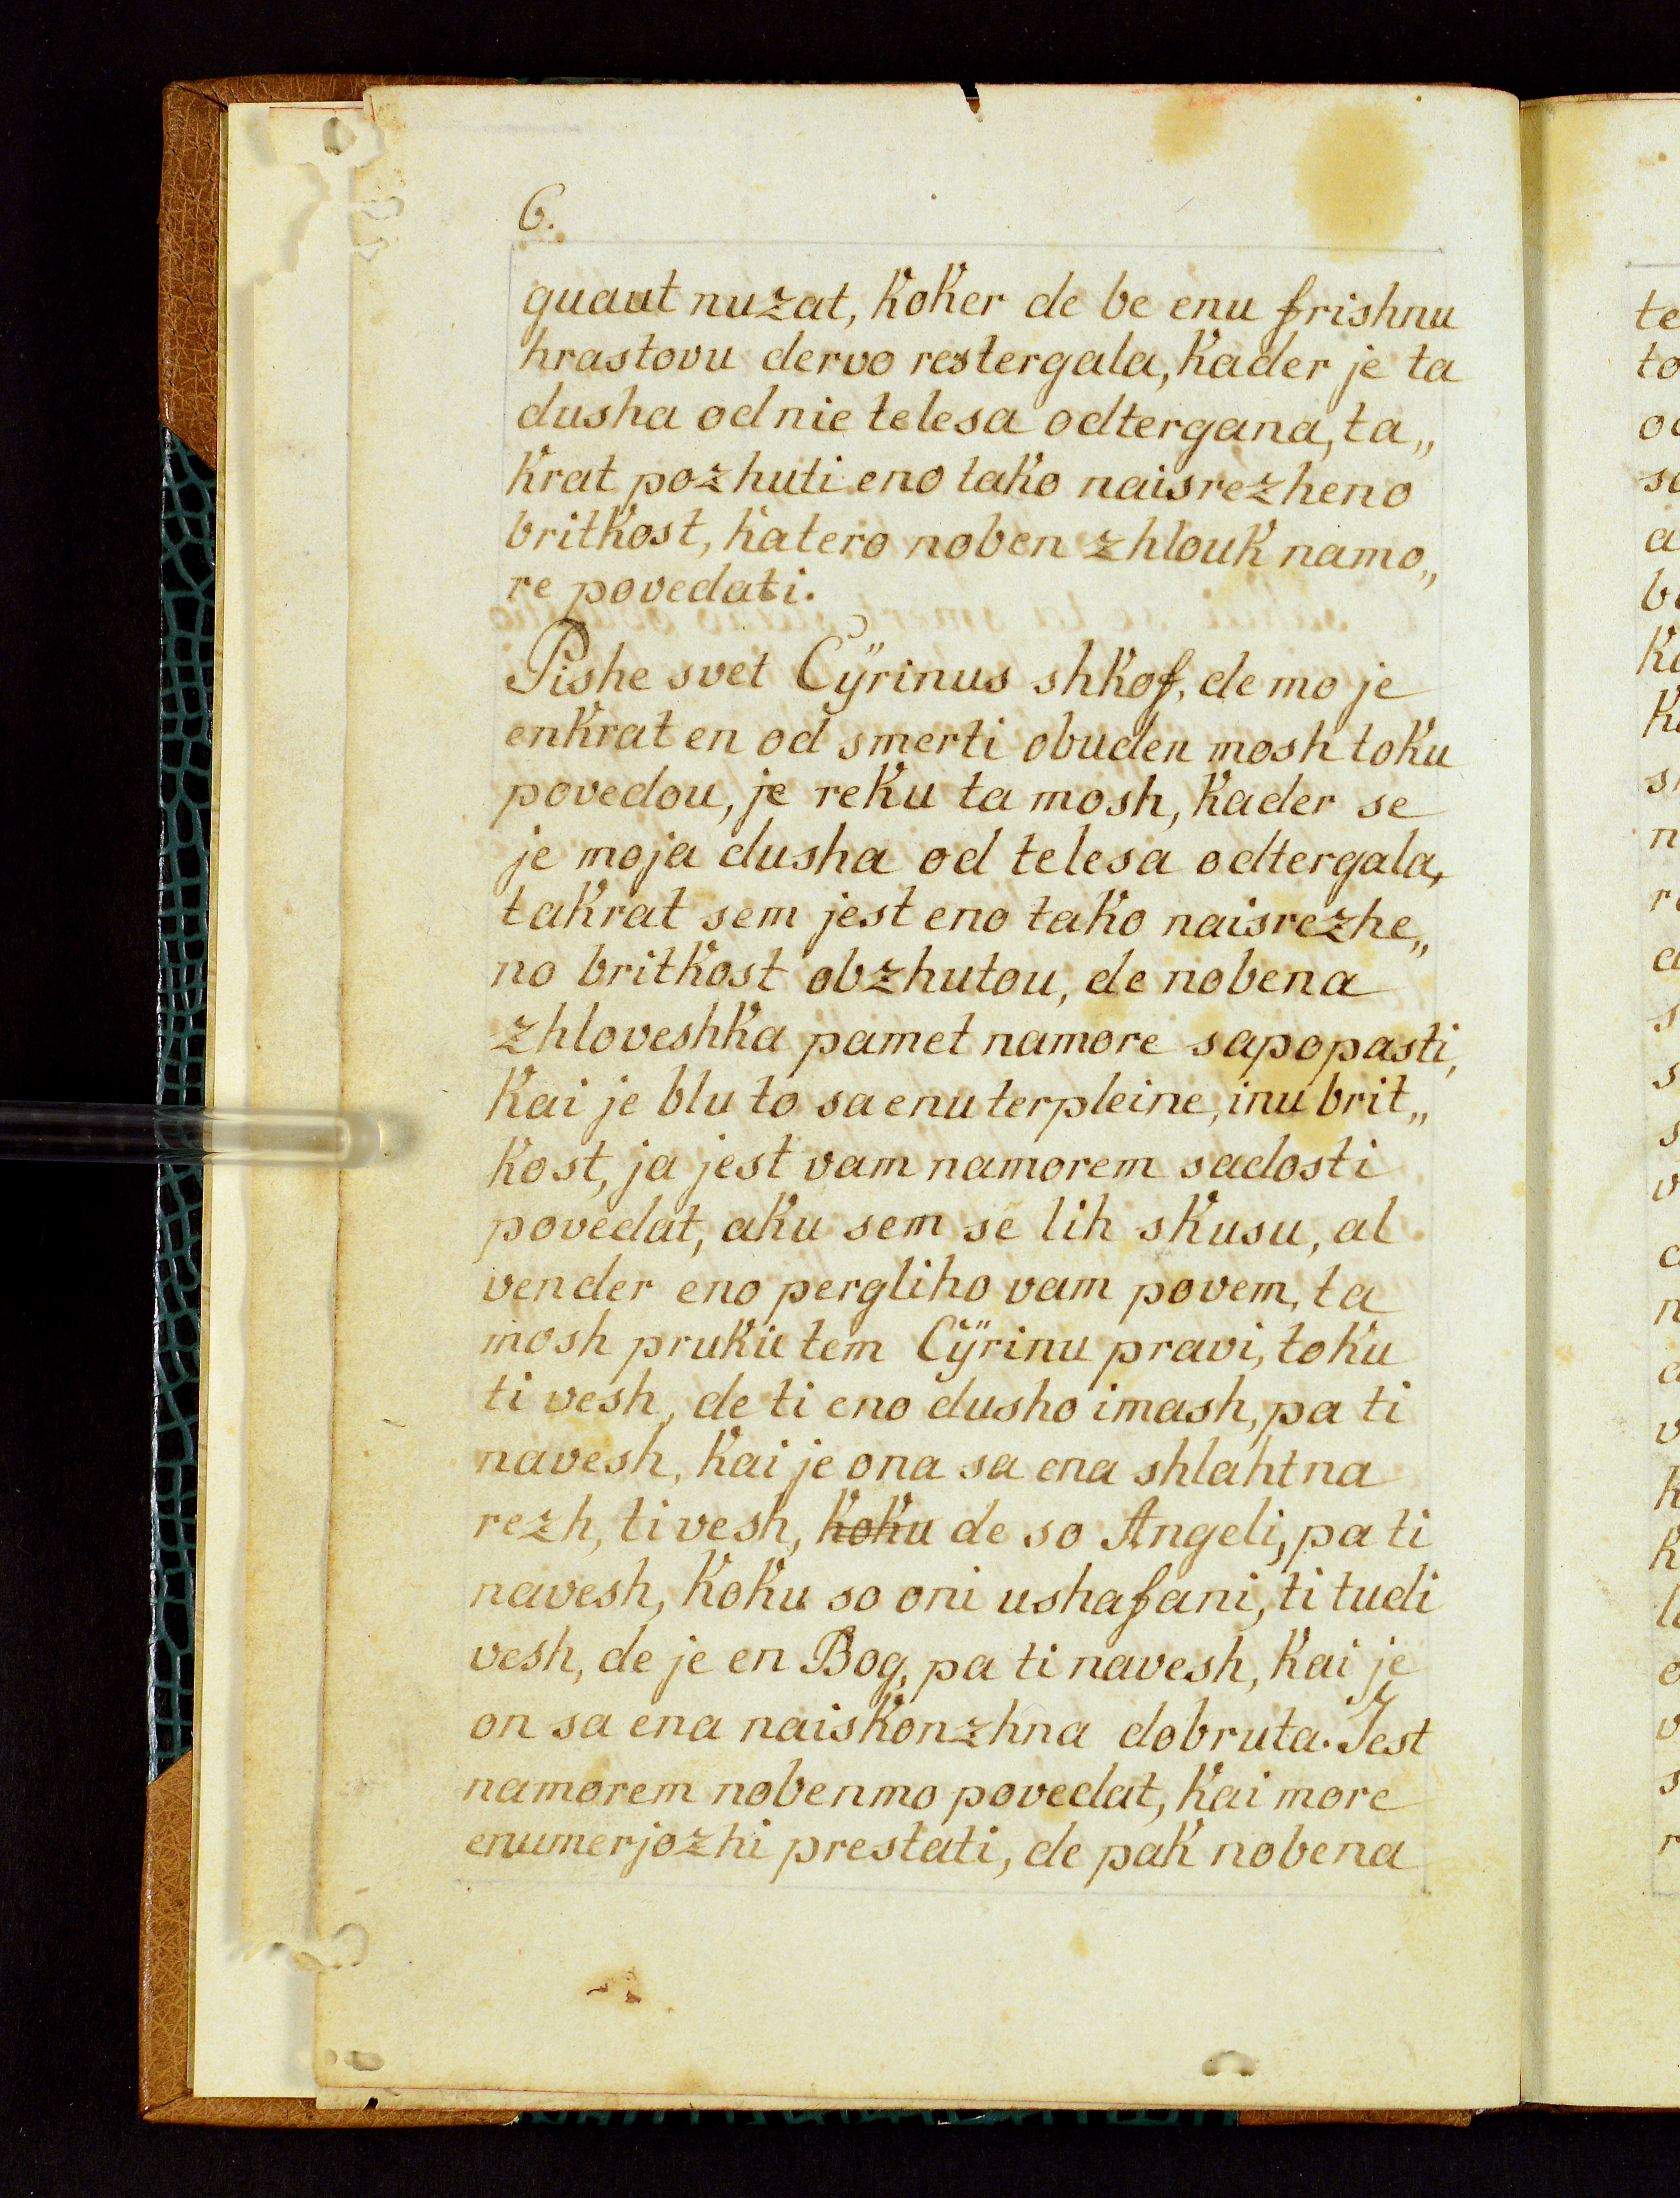 6.
guaut nuzat, koker de be enu frishnu
hrastovu dervo restergala, kader je ta
dusha od nie telesa odtergana, ta„
krat pozhuti eno tako naisrezheno
britkost, katero noben zhlouk namo„
re povedati.
Pishe svet Cÿrinus shkof, de mo je
enkrat en od smerti obuden mosh toku
povedou, je reku ta mosh, kader se
je moja dusha od telesa odtergala,
takrat sem jest eno tako naisrezhe„
no britkost obzhutou, de nobena
zhloveshka pamet namore sapopasti,
kai je blu to sa enu terpleine, inu brit„
kost, ja jest vam namorem sadosti
povedat, aku sem se lih skusu, al
vender eno pergliho vam povem, ta
mosh prukie tem Cÿrinu pravi, toku
ti vesh, de ti eno dusho imash, pa ti
navesh, kai je ona sa ena shlahtna
rezh, ti vesh, koku de so Angeli, pa ti
navesh, koku so oni ushafani, ti tudi
vesh, de je en Bog, pa ti navesh, kai je
on sa ena naiskonzhna dobruta. Jest
namorem nobenmo povedat, kai more
enumerjozhi prestati, de pak nobena